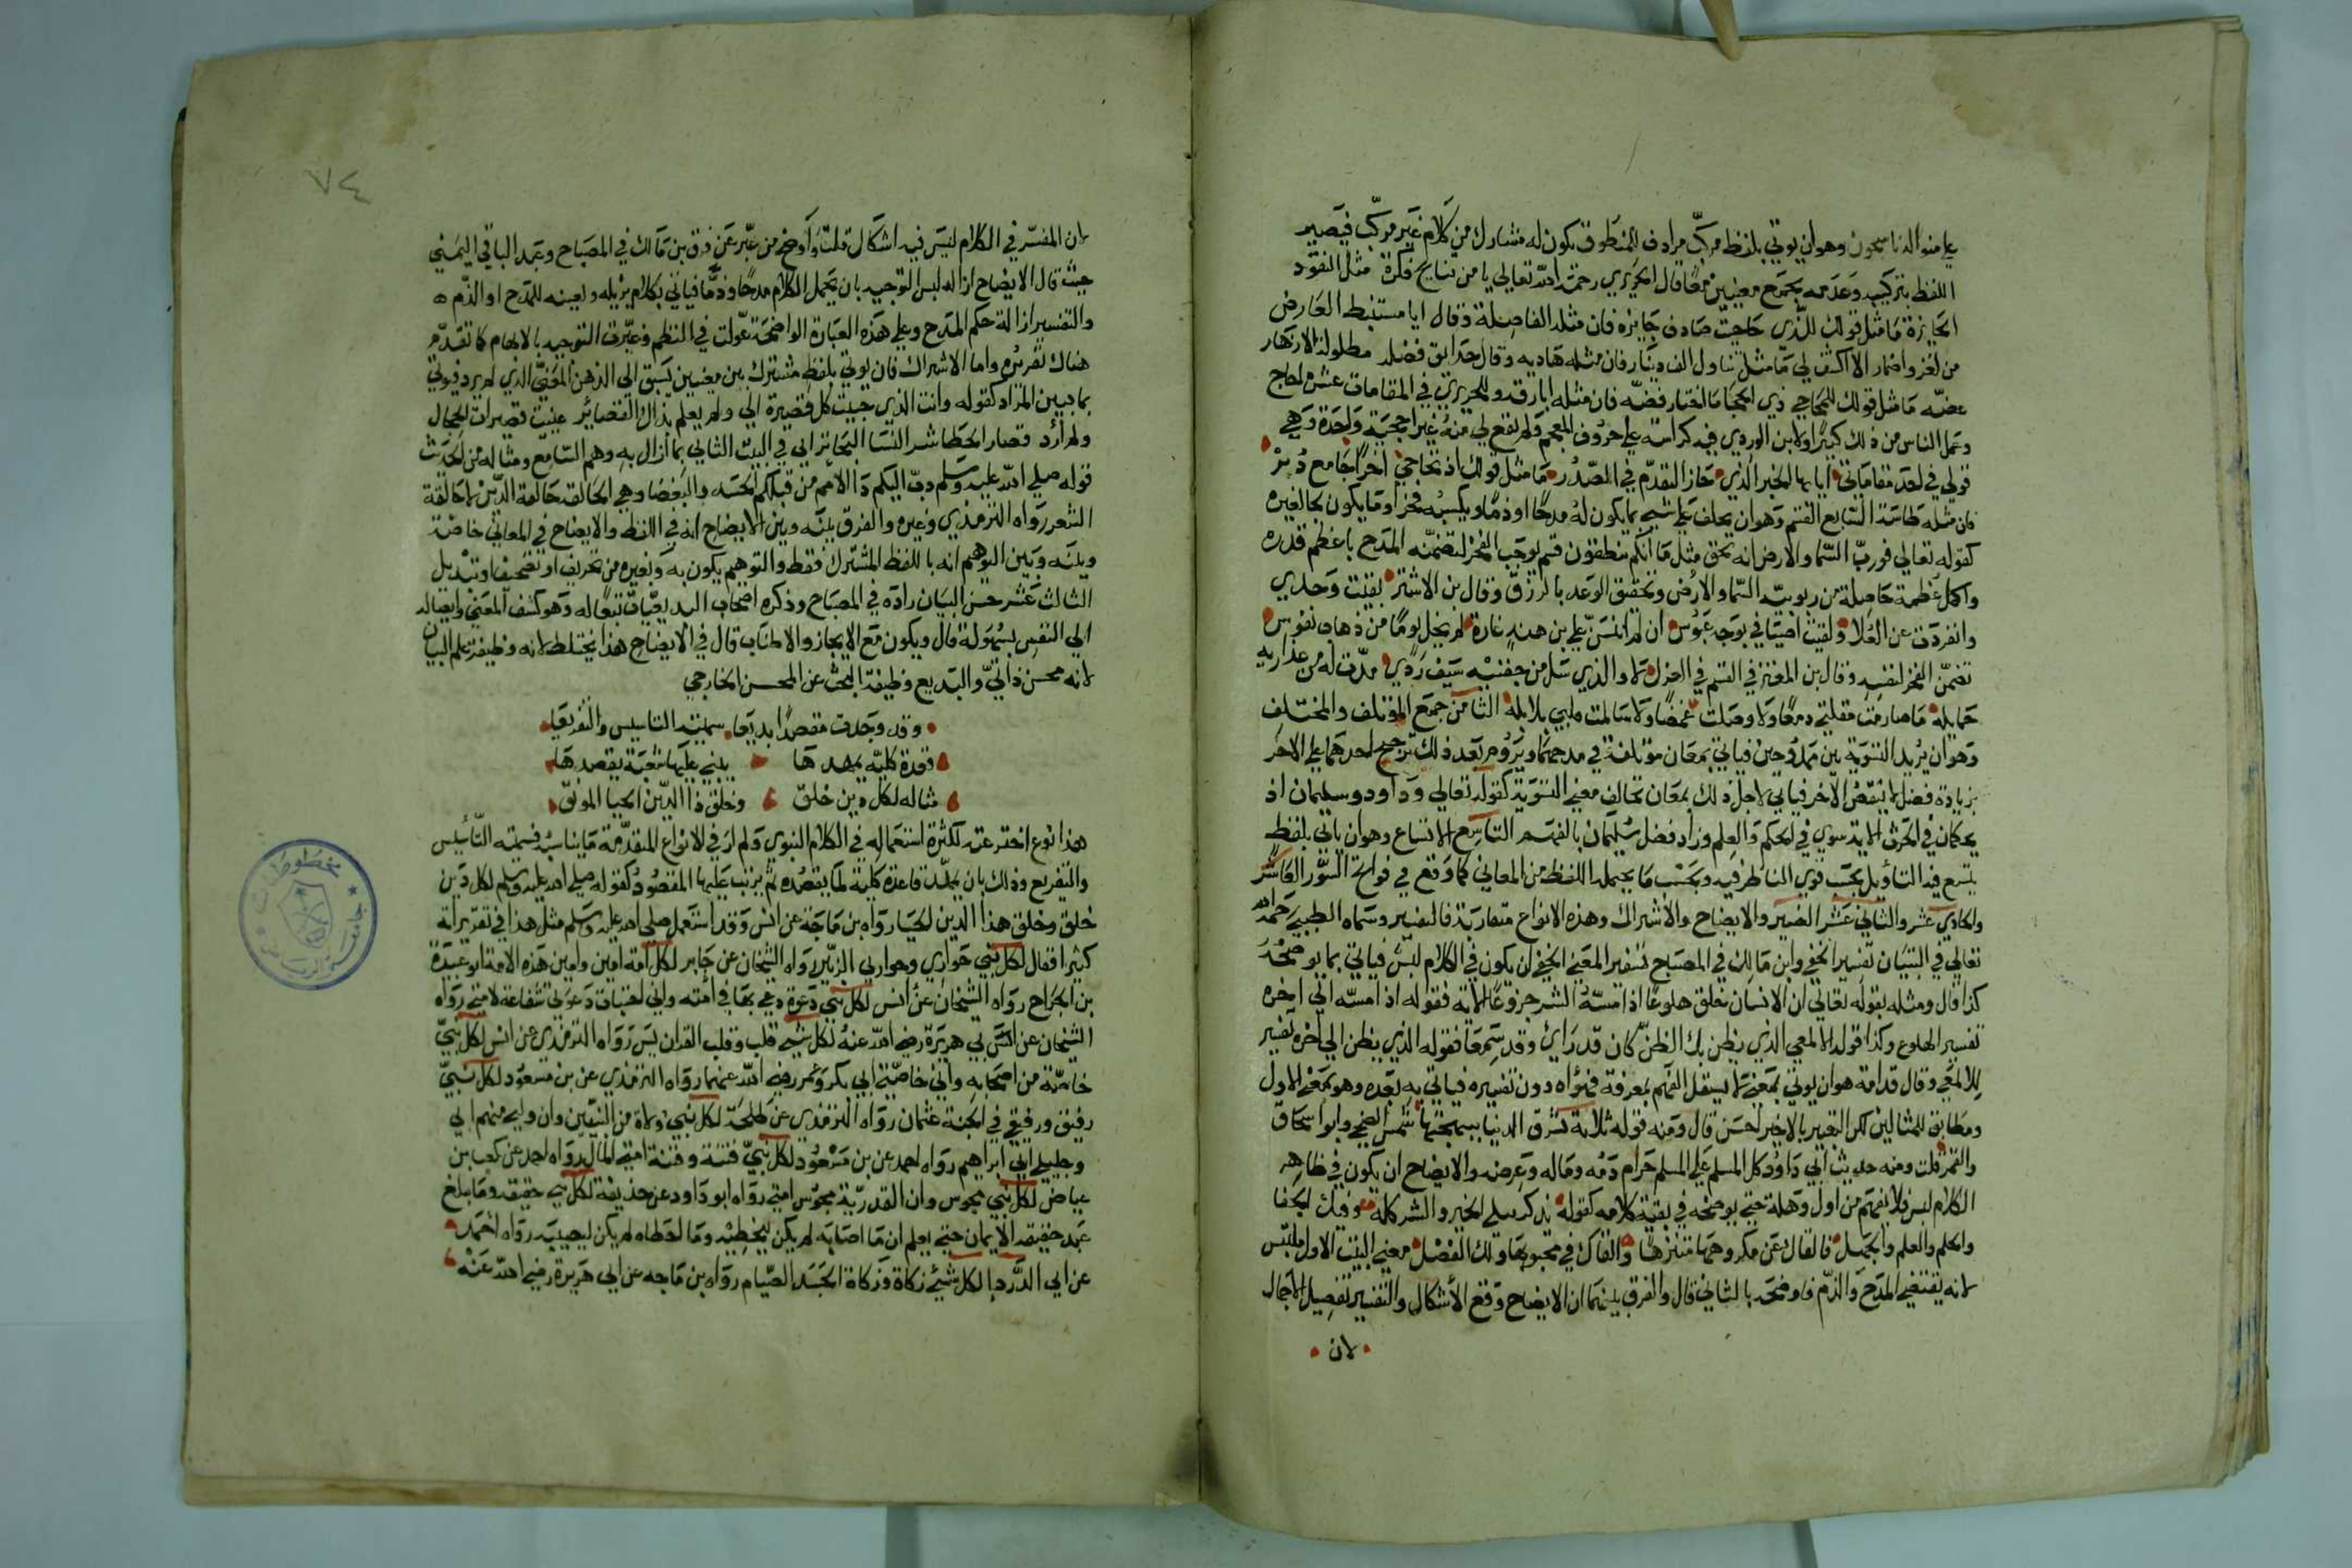 علي منواله الناسجون وهو ان يوتي بلفظ مركب مرادف للمنطوق يكون له مشارك من كلام غير مركب فيصير
اللفظ بتركيبه وعدمه يجمع معنيين معا قال الحريري رحمه الله تعالي يا من نتايج فكره مثل النقود
الجايزة ما مثل قولك للذي حاجيت صادف جايزه فان مثله الفاصلة وقال ايا مستنبط الغامض
من لغز واضمار الا اكشف لي ما مثل تناول الف دينار فان مثله هاديه وقال حدايق فضله مطلولة الازهار
غضه ما مثل قولك للمحاجي ذي الحجا ما اختار فضه فان مثله ابا رقه وللحريري في المقامات عشرون احاج
وعمل الناس من ذلك كثيرا ولابن الوردي فيه كراسة علي حروف المعجم ولم يقع لي منه غير احجية واحدة وهي
قولي في احد مقاماتي ايا بها الخبر الذي حاز التقدم في الصدر ما مثل قولك اذ تحاجي آخرا جامع دبر
فان مثله طاسة السابع القسم وهو ان يحلف علي شيء بما يكون له مدحا او ذما ويكسبه فخرا وما يكون بحا لغيره
كقوله تعالي فورب السما والارض انه لحق مثل ما انكم تنطقون قسم يوجب الفخر لتضمنه المدح باعظم قدره
واكمل عظمة حاصلة من ربوبية السما والارض وتحقيق الوعد بالرزق وقال بن الاشتر بقيت وحدي
وانفردت عن العلا ولقيت اضيافي بوجه عبوس ان لم اشن علي بن هند غارة لم تخل يوما من ذهاب نفوس
تضمن الفخر لنفسه وقال بن المعتز في القسم في الغزل لا والذي سل من جفنيه سيف ردي قدت له من عذاريه
حمايله ما صارمت مقلتي دمعا ولا وصلت غمضا ولا سالمت قلبي بلابله الثامن جمع المؤتلف والمختلف
وهو ان يريد التسوية بين ممدوحين فياتي بمعان مؤتلفة في مدحهما ويروم بعد ذلك ترجيح احدهما علي الاخر
بزيادة فضل لا ينقص الآخر فياتي لاجل ذلك بمعان تخالف معني التسوية كقوله تعالي وداود وسليمان اذ
يحكمان في الحرث الاية سوي في الحكم والعلم وزاد فضل سليمان بالفهم التاسع الاتساع وهو ان ياتي بلفظ
يتسع فيه التأويل بحسب قوي الناظر فيه وبحسب ما يحتمله اللفظ من المعاني كما وقع في فواتح السور العاشر
والحادي عشر والثاني عشر التفسير والايضاح والاشراك وهذه الانواع متقاربة فالتفسير وسماه الطيبي رحمه الله
تعالي في التبيان تفسير الخفي وابن مالك في المصباح تفسير المعني الخفي ان يكون في الكلام لبس فياتي بما يوضحه
كذا قال ومثله بقوله تعالي ان الانسان خلق هلوعا اذا مسه الشر جزوعا الاية فقوله اذا مسه الي اخره
تفسير الهلوع وكذا قوله الالمعي الذي يظن بك الظن كان قد رأي وقد سمعا فقوله الذي يظن الي اخره تفسير
للالمعي وقال قدامة هو ان يوتي بمعني لا يستقل الفهم بمعرفة فحواه دون تفسيره فياتي به بعده وهو بمعني الاول
ومطابق للمثالين لكن التعبير بالاخير احسن قال ومنه قوله ثلاثة تشرق الدنيا ببهجتها شمس الضحي وابو اسحاق
والقمر قلت ومنه حديث ابي داود كل المسلم علي المسلم حرام دمه وماله وعرضه والايضاح ان يكون في ظاهر
الكلام لبس فلا يفهم من اول وهلة حتي يوضحه في بقية كلامه كقوله يذكرنيك الخير والشر كله وفيك الخفا
والحلم والعلم والجهل فالقاك عن مكروهها متنزها والقاك في محبوبها ولك الفضل معني البيت الاول ملتبس
لانه يقتضي المدح والذم فاوضحه بالثاني قال والفرق بينهما ان الايضاح رفع الاشكال والتفسير تفصيل الاجمال
لان
٧٤
لان المفسر في الكلام ليس فيه اشكال قلت واوضح من عبر عن فرق بن مالك في المصباح وعبد الباقي اليمني
حيث قال الايضاح ازالة لبس التوجيه بان يحتمل الكلام مدحا وذما فياتي بكلام يزيله ويعينه للمدح او الذم
والتفسير ازالة حكم المدح وعلي هذه العبارة الواضحة عولت في النظم وعبرت التوجيه بالابهام كما تقدم
هناك تقريره واما الاشراك فان يوتي بلفظ مشترك بين معنيين يسبق الي الذهن المعني الذي لم يرد فيوتي
بما يبين المراد كقوله وانت الذي حببت كل قصيرة الي ولم يعلم بذاك القصائر عنيت قصيرات الحجال
ولم أرد قصار الخطا شر النسا البحاتر اتي في البيت الثاني بما ازال به وهم السامع ومثاله من الحديث
قوله صلي الله عليه وسلم دب اليكم دا الامم من قبلكم الحسد والبغضا وهي الحالقة حالقة الدين لا حالقة
الشعر رواه الترمذي وغيره والفرق بينه وبين الايضاح انه في اللفظ والايضاح في المعاني خاصة
وبينه وبين التوهيم انه باللفظ المشترك فقط والتوهيم يكون به وبغيره من تحريف او تصحيف او تبديل
الثالث عشر حسن البيان زاده في المصباح وذكره اصحاب البديعيات تبعا له وهو كشف المعني وايصاله
الي النفس بسهولة قال ويكون مع الايجاز والاطناب قال في الايضاح هذا يختلط لانه وظيفة علم البيان
لانه محسن ذاتي والبديع وظيفته البحث عن المحسن الخارجي
وقد وجدت مقصدا بديعا سميته التاسيس والتفريعا
قاعدة كلية يمهدها يبني عليها شعبة يقصدها
مثاله لكل دين خلق وخلق ذا الدين الحيا المونق
هذا نوع اخترعته لكثرة استعماله في الكلام النبوي ولم ار في الانواع المتقدمة ما يناسبه فسميته التأسيس
والتفريع وذلك بان يمهد قاعدة كلية لما يقصده ثم يرتب عليها المقصود كقوله صلي الله عليه وسلم لكل دين
خلق وخلق هذا الدين الحيا رواه بن ماجة عن انس وقد استعمل صلي الله عليه وسلم مثل هذا في تقريراته
كثيرا فقال لكل نبي حواري وحواري الزبير رواه الشيخان عن جابر لكل امة امين وامين هذه الامة ابو عبيدة
بن الجراح رواه الشيخان عن انس لكل نبي دعوة دعي بها في امته واني اختبات دعوتي شفاعة لامتي رواه
الشيخان عن انس ابي هريرة رضي الله عنه لكل شيء قلب وقلب القران يس رواه الترمذي عن انس لكل نبي
خاصة من اصحابه واني خاصتي ابي بكر وعمر رضي الله عنهما رواه الترمذي عن بن مسعود لكل نبي
رفيق ورفيقي في الجنة عثمان رواه الترمذي عن طلحة لكل نبي ولاة من النبيين وان وليي منهم ابي
وخليلي ابي ابراهيم رواه احمد عن بن مسعود لكل نبي فتنة وفتنة امتي المال رواه احمد عن كعب بن
عياض لكل نبي مجوس وان القدرية مجوس امتي رواه ابو داود عن حذيفة لكل شي حقيقة وما بلغ
عبد حقيقة الايمان حتي يعلم ان ما اصابه لم يكن ليخطيه وما اخطاه لم يكن ليصيبه رواه احمد
عن ابي الدرداء لكل شيء زكاة وزكاة الجسد الصيام رواه بن ماجه عن ابي هريرة رضي الله عنه